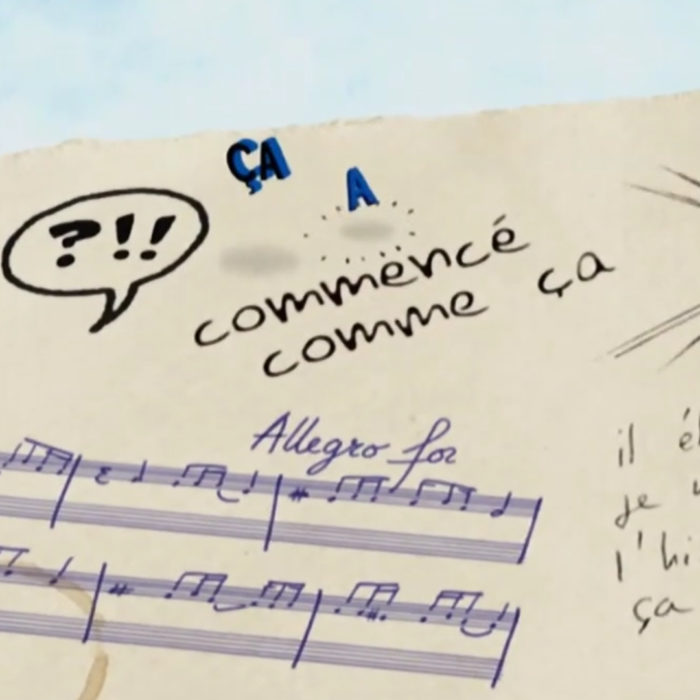 ÇA
A
?!!
commencé
comme ça
Allegro for
il
je
l'hi
ça